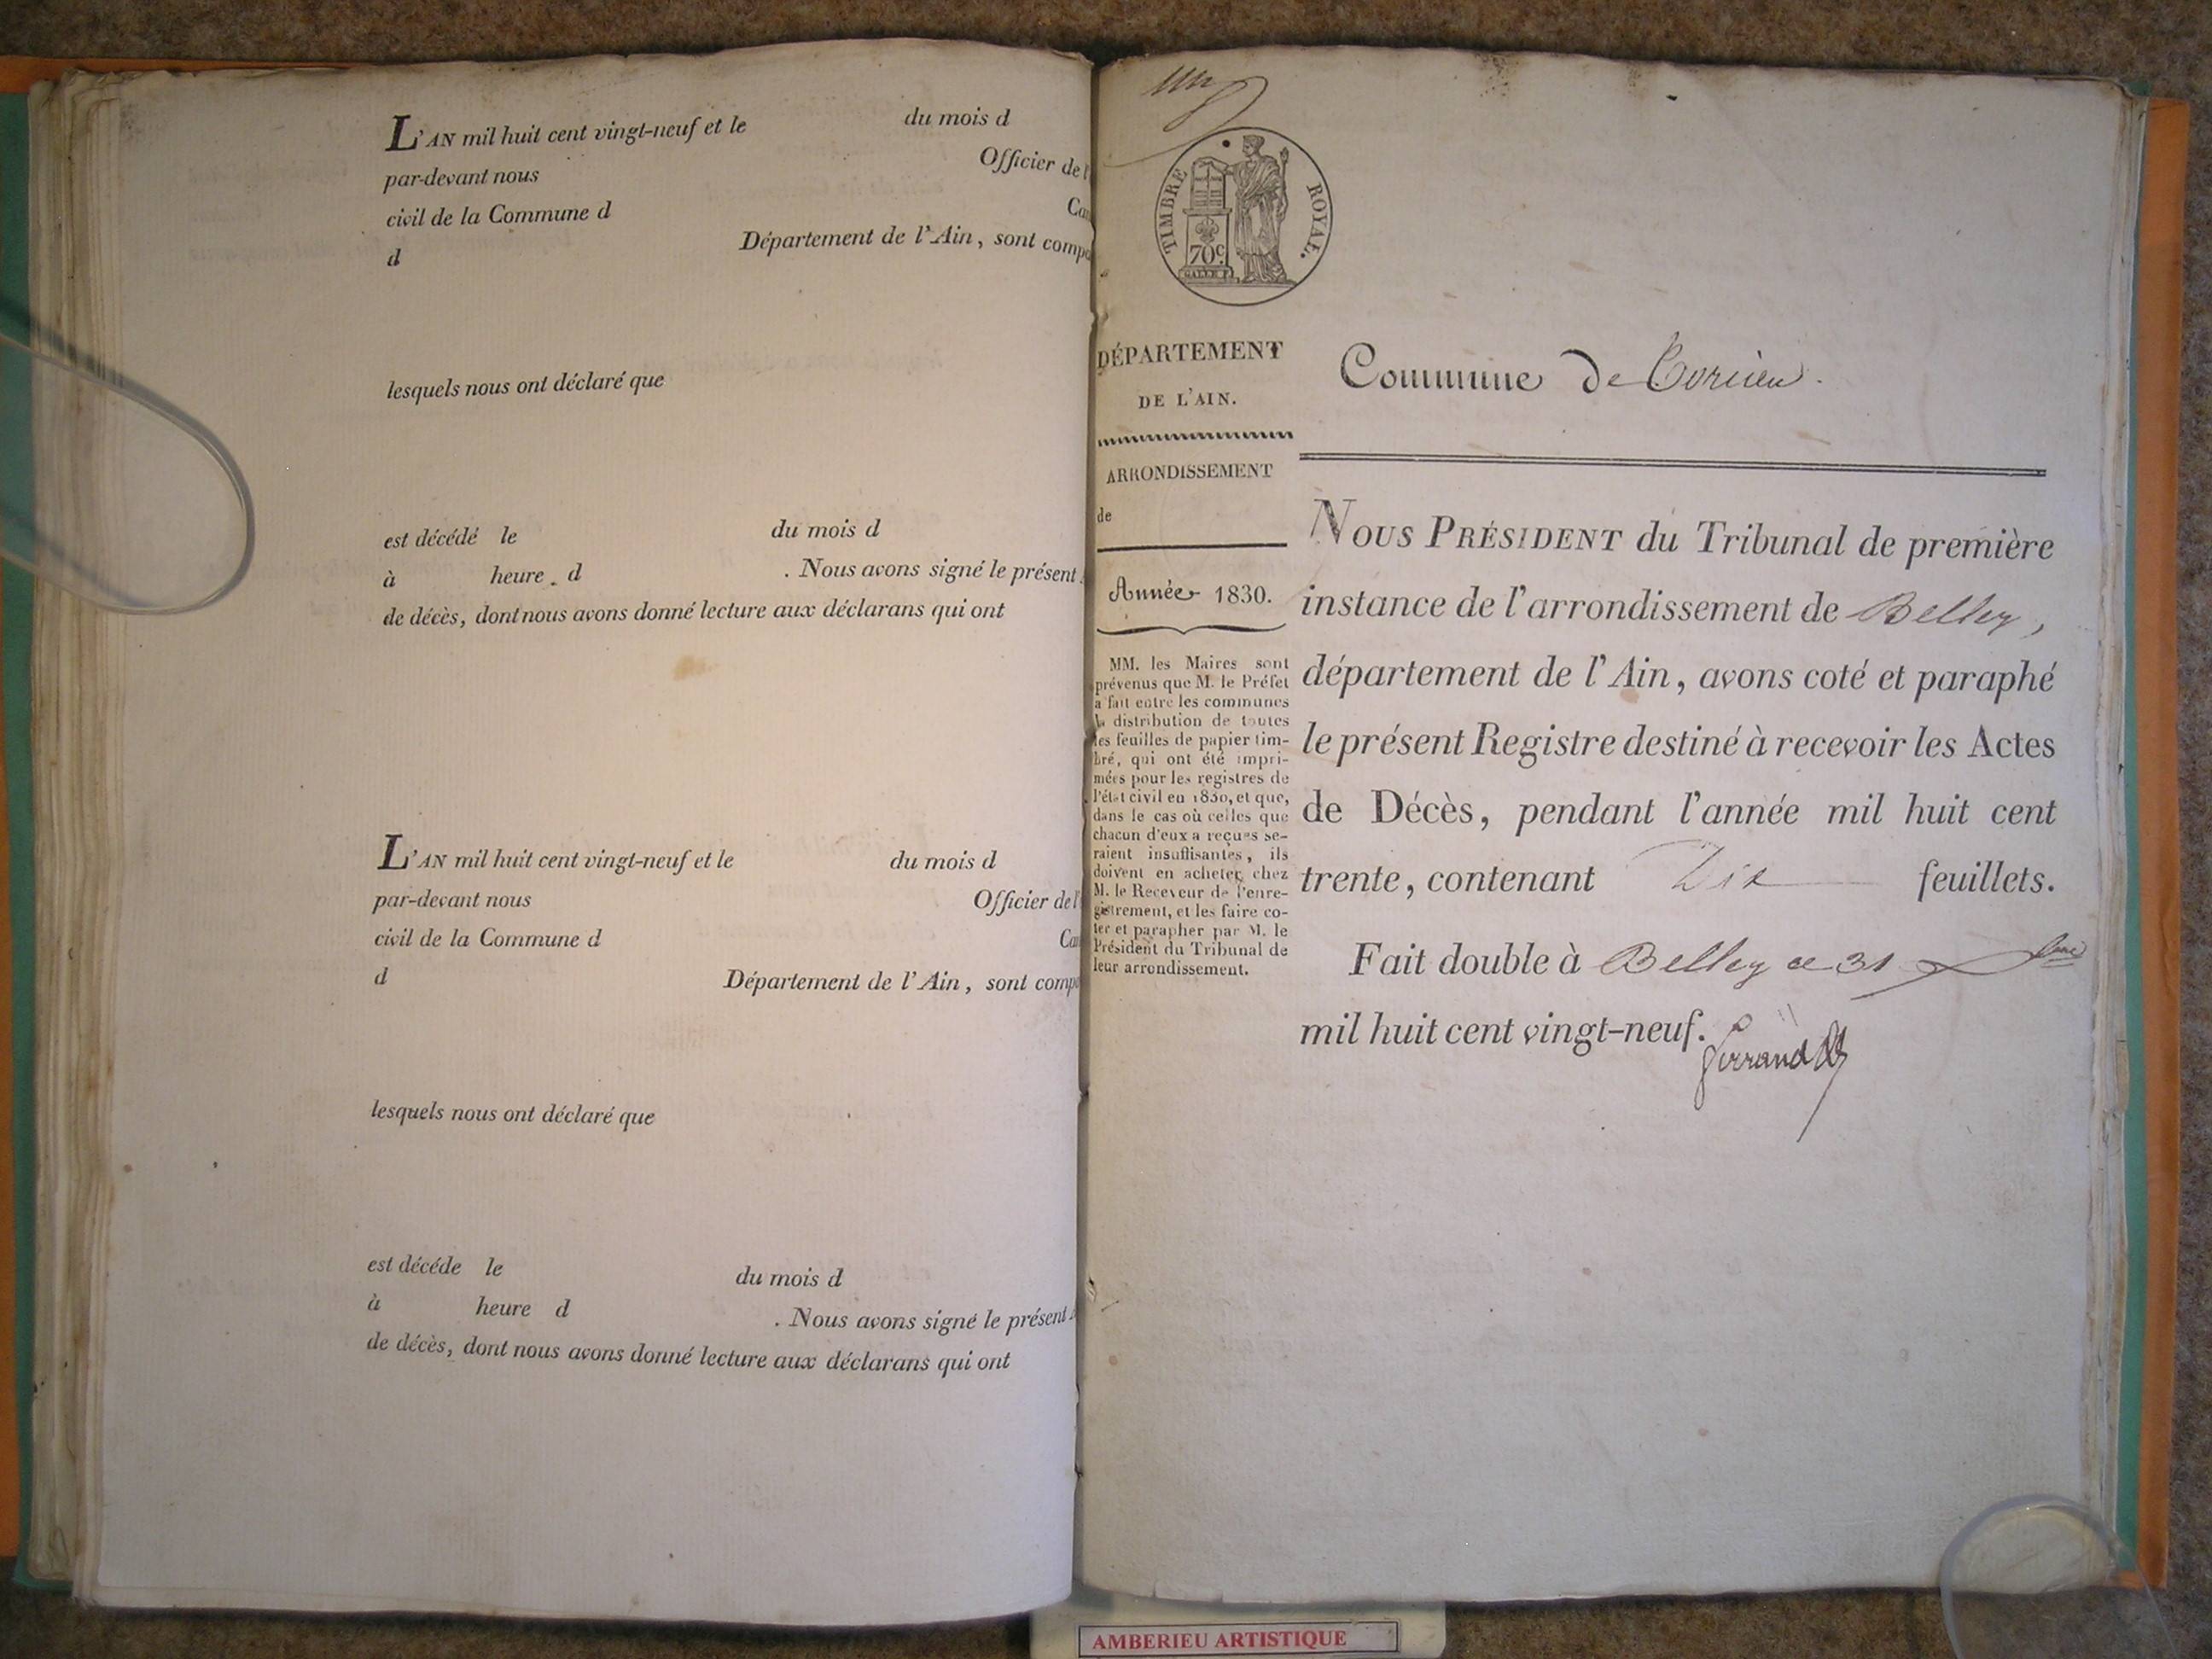 L'AN mil huit cent vingt-neuf et le du mois d
par-devant nous Officier de l
civil de la Commune d Ca
d Département de l'Ain, sont compa
lesquels nous ont déclaré que
est décédé le du mois d
à heure d . Nous avons signé le présent
de décès, dont nous avons donné lecture aux déclarans qui ont
L'AN mil huit cent vingt-neuf et le du mois d
par-devant nous Officier de l
civil de la Commune d Ca
d Département de l'Ain, sont comp
lesquels nous ont déclaré que
est décéde le du mois d
à heure d . Nous avons signé le présent
de décès, dont nous avons donné lecture aux déclarans qui ont
un
TIMBRE ROYAL.
70c.
DÉPARTEMENT
DE L'AIN.
ARRONDISSEMENT
de
Année 1830.
MM. les Maires sont
prévenus que M. le Préfet
a fait entre les communes
la distribution de toutes
les feuilles de papier tim-
bré, qui ont été impri-
mées pour les registres de
l'état civil en 1830, et que,
dans le cas où celles que
chacun d'eux a reçues se-
raient insuffisantes, ils
doivent en acheter chez
M. le Receveur de l'enre-
gistrement, et les faire co-
ter et parapher par M. le
Président du Tribunal de
leur arrondissement.
Commune de Torcieu.
NOUS PRÉSIDENT du Tribunal de première
instance de l'arrondissement de Belley,
département de l'Ain, avons coté et paraphé
le présent Registre destiné à recevoir les Actes
de Décès, pendant l'année mil huit cent
trente, contenant Dix feuillets.
Fait double à Belley ce 31
mil huit cent vingt-neuf.
Ferrand
AMBERIEU ARTISTIQUE